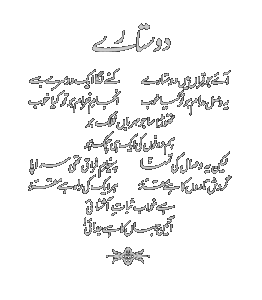 دو ستارے
آئے جو قراں میں دو ستارے کہنے لگا ایک دوسرے سے
یہ وصل مدام ہو تو کیا خوب انجامِ خرام ہو تو کیا خوب
تھوڑا سا جو مہرباں فلک ہو
ہم دونوں کی ایک ہی چمک ہو
لیکن یہ وصال کی تمنا پیغامِ فراق تھی سراپا
گردش تاروں کا ہے مقدر ہر ایک کی راہ ہے مقرر
ہے خواب ثباتِ آشنائی
آئین جہاں کا ہے جدائی